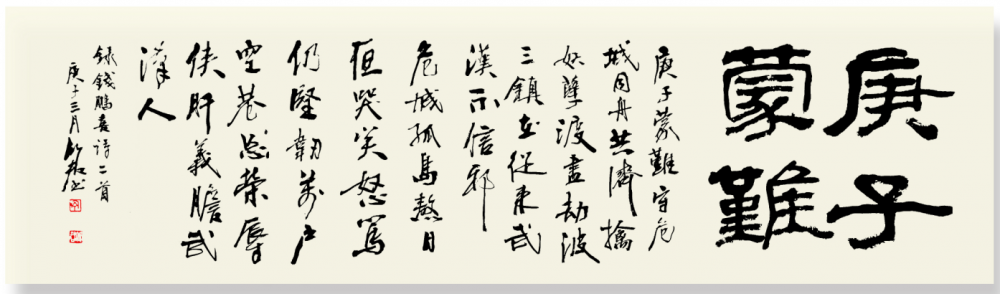 庚子
蒙難
庚子蒙難守危
城同舟共濟擒
妖孽渡盡劫波
三鎮在從來武
漢不信邪
危城孤島熬日
恒哭笑怒罵
仍堅韌萬户
空巷忘榮辱
俠肝義膽武
漢人
錄錢鵬喜詩二首
庚子三月